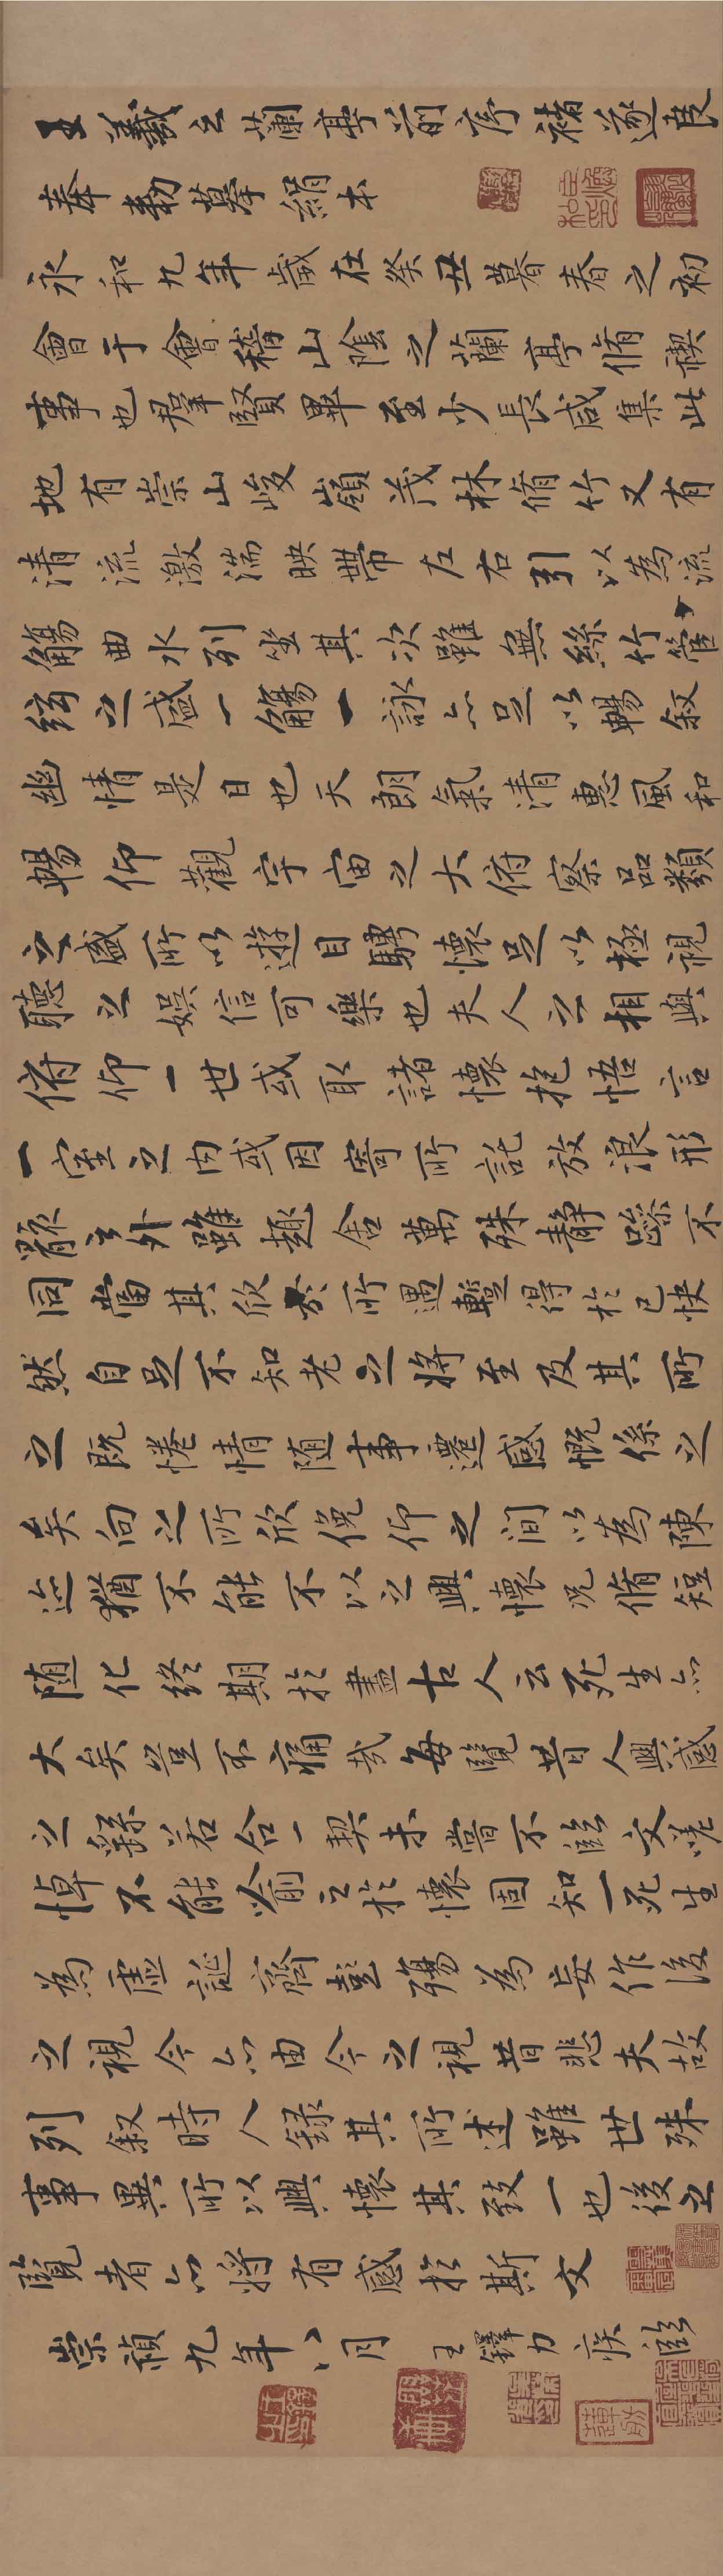 王羲之蘭亭前序褚遂良
奉勅摹絹本
永和九年歲在癸丑暮春之初
會于會稽山陰之蘭亭脩禊
事也群賢畢至少長咸集此
地有崇山峻嶺茂林脩竹又有
清流激湍映帶左右引以為流
觴曲水列坐其次雖無絲竹管
絃之盛一觴一詠亦足以暢敘
幽情是日也天朗氣清惠風和
暢仰觀宇宙之大俯察品類
之盛所以遊目騁懷足以極視
聽之娛信可樂也夫人之相與
俯仰一世或取諸懷抱悟言
一室之內或因寄所託放浪形
骸之外雖趣舍萬殊靜躁不
同當其欣於所遇暫得於己快
然自足不知老之將至及其所
之既惓情隨事遷感慨係之
矣向之所欣俛仰之間以為陳
迹猶不能不以之興懷況脩短
隨化終期於盡古人云死生亦
大矣豈不痛哉每覽昔人興感
之繇若合一契未嘗不臨文嗟
悼不能喻之於懷固知一死生
為虛誕齊彭殤為妄作後
之視今亦由今之視昔悲夫故
列敘時人錄其所述雖世殊
事異所以興懷其致一也後之
覽者亦將有感於斯文
崇禎九年八月王鐸力疾臨